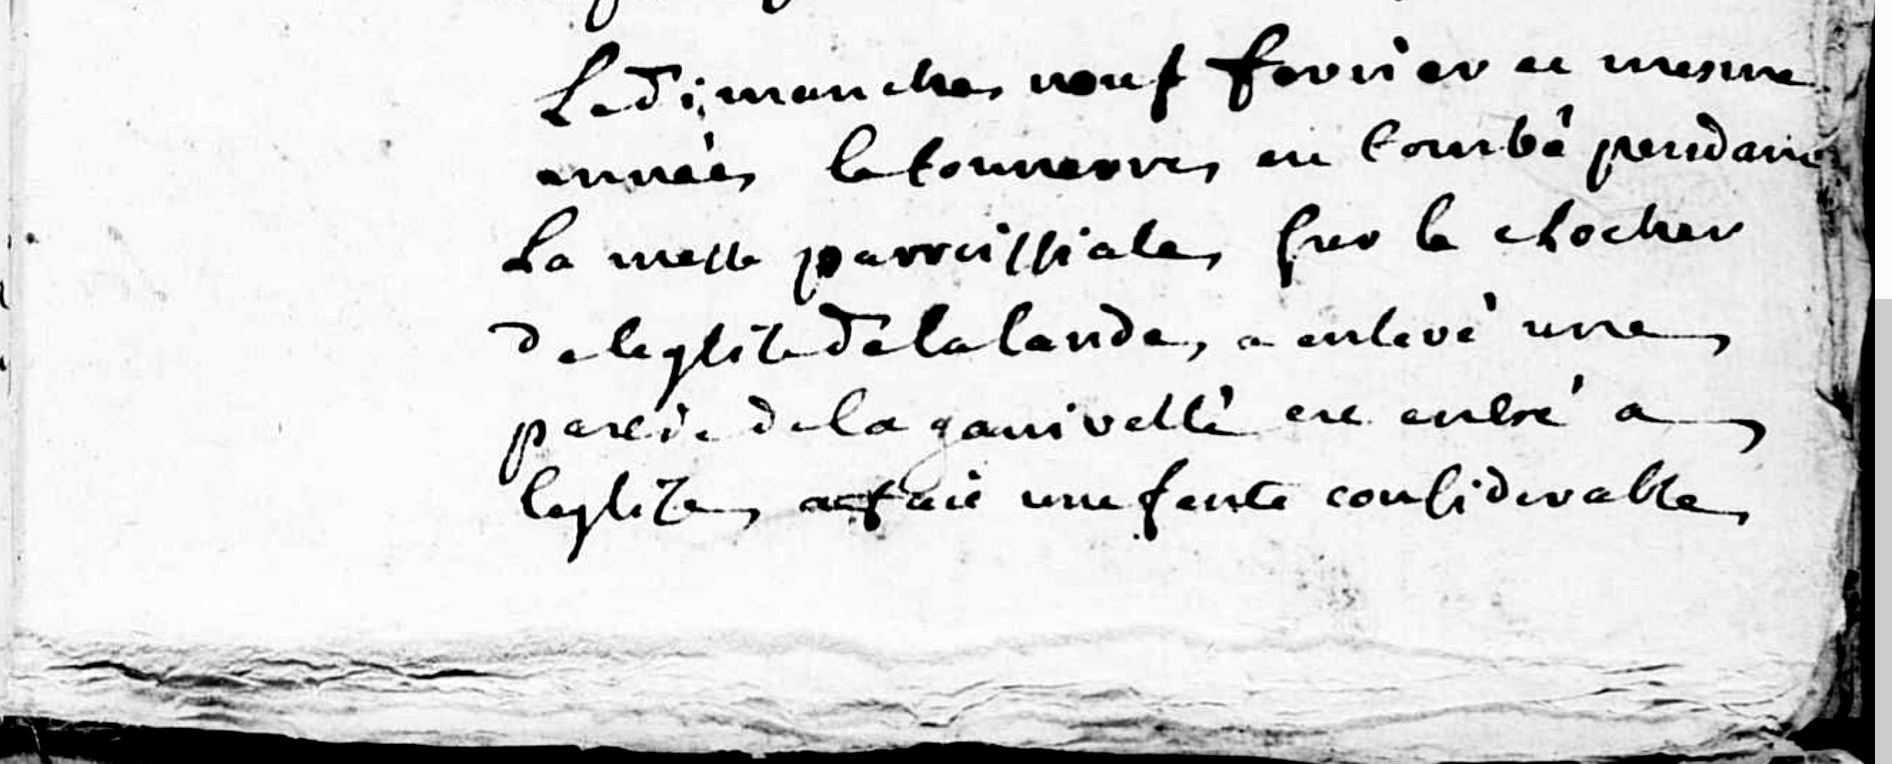 Le dimanche neuf fevrier de mesme
année le tonnerre en tombé pendant
La messe parroissiale sur le clocher
de leglize de la lande, a enlevé une
partie de la ganivelle est entré a
leglize a fait une fente considerable